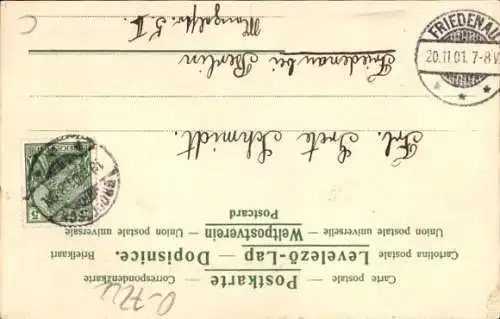 Postkarte
Carte postale — Correspondenzkarte
Levelező-Lap — Dopisnice.
Cartolina postale — Briefkaart
Weltpostverein
Union postale universelle — Union postale universale
Postcard
Frl. Grete Schmidt.
Friedenau bei Berlin
5 I
FRIEDENAU
20.11 01. 7-8 V.
5